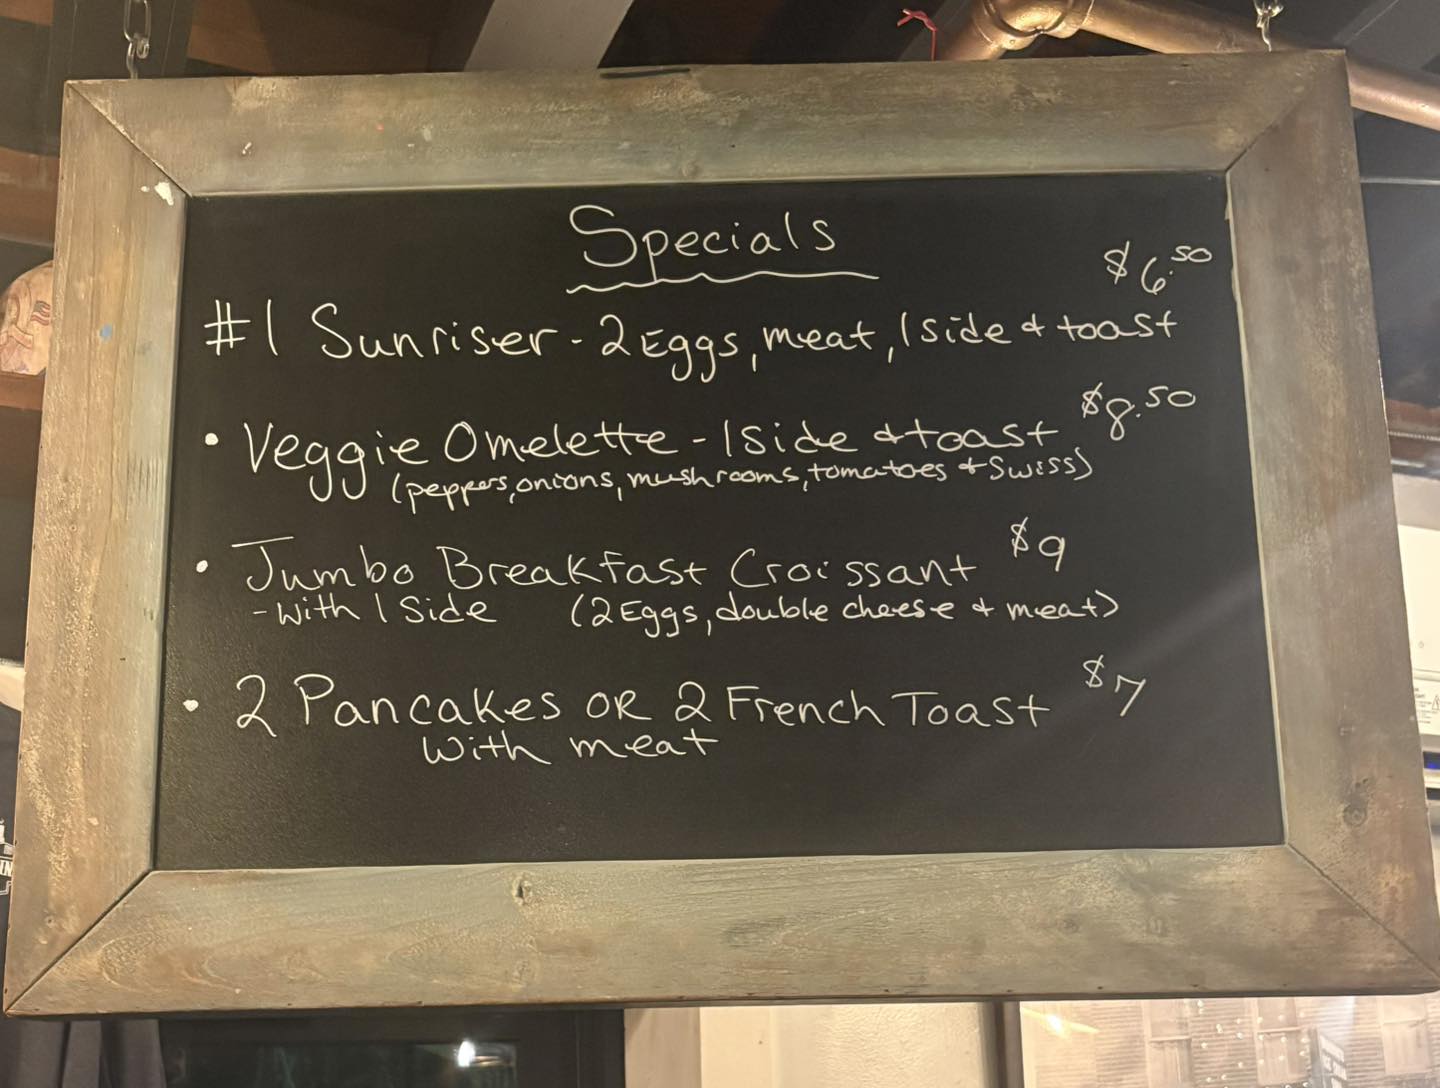 Specials
$6.50
#1 Sunriser - 2 Eggs, meat, 1 side & toast
• Veggie Omelette - 1 Side & toast $8.50
(peppers, onions, mushrooms, tomatoes & Swiss)
• Jumbo Breakfast Croissant $9
- with 1 Side (2 Eggs, double cheese & meat)
• 2 Pancakes OR 2 French Toast $7
with meat